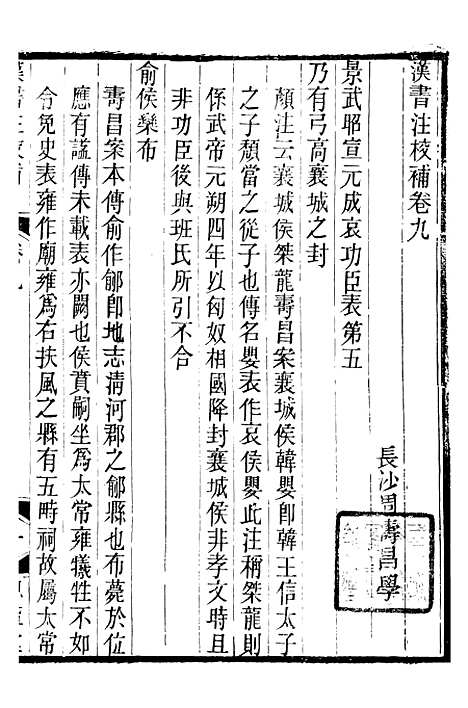 漢書注校補卷九
長沙周壽昌學
景武昭宣元成哀功臣表第五
乃有弓高襄城之封
顏注云襄城侯桀龍壽昌案襄城侯韓嬰卽韓王信太子
之子頹當之從子也傳名嬰表作哀侯嬰此注稱桀龍則
係武帝元朔四年以匈奴相國降封襄城侯非孝文時且
非功臣後與班氏所引不合
俞侯欒布
壽昌案本傳俞作鄃卽地志淸河郡之鄃縣也布薨於位
應有謚傳未載表亦闕也侯賁嗣坐爲太常雍犧牲不如
令免史表雍作廟雍爲右扶風之縣有五畤祠故屬太常